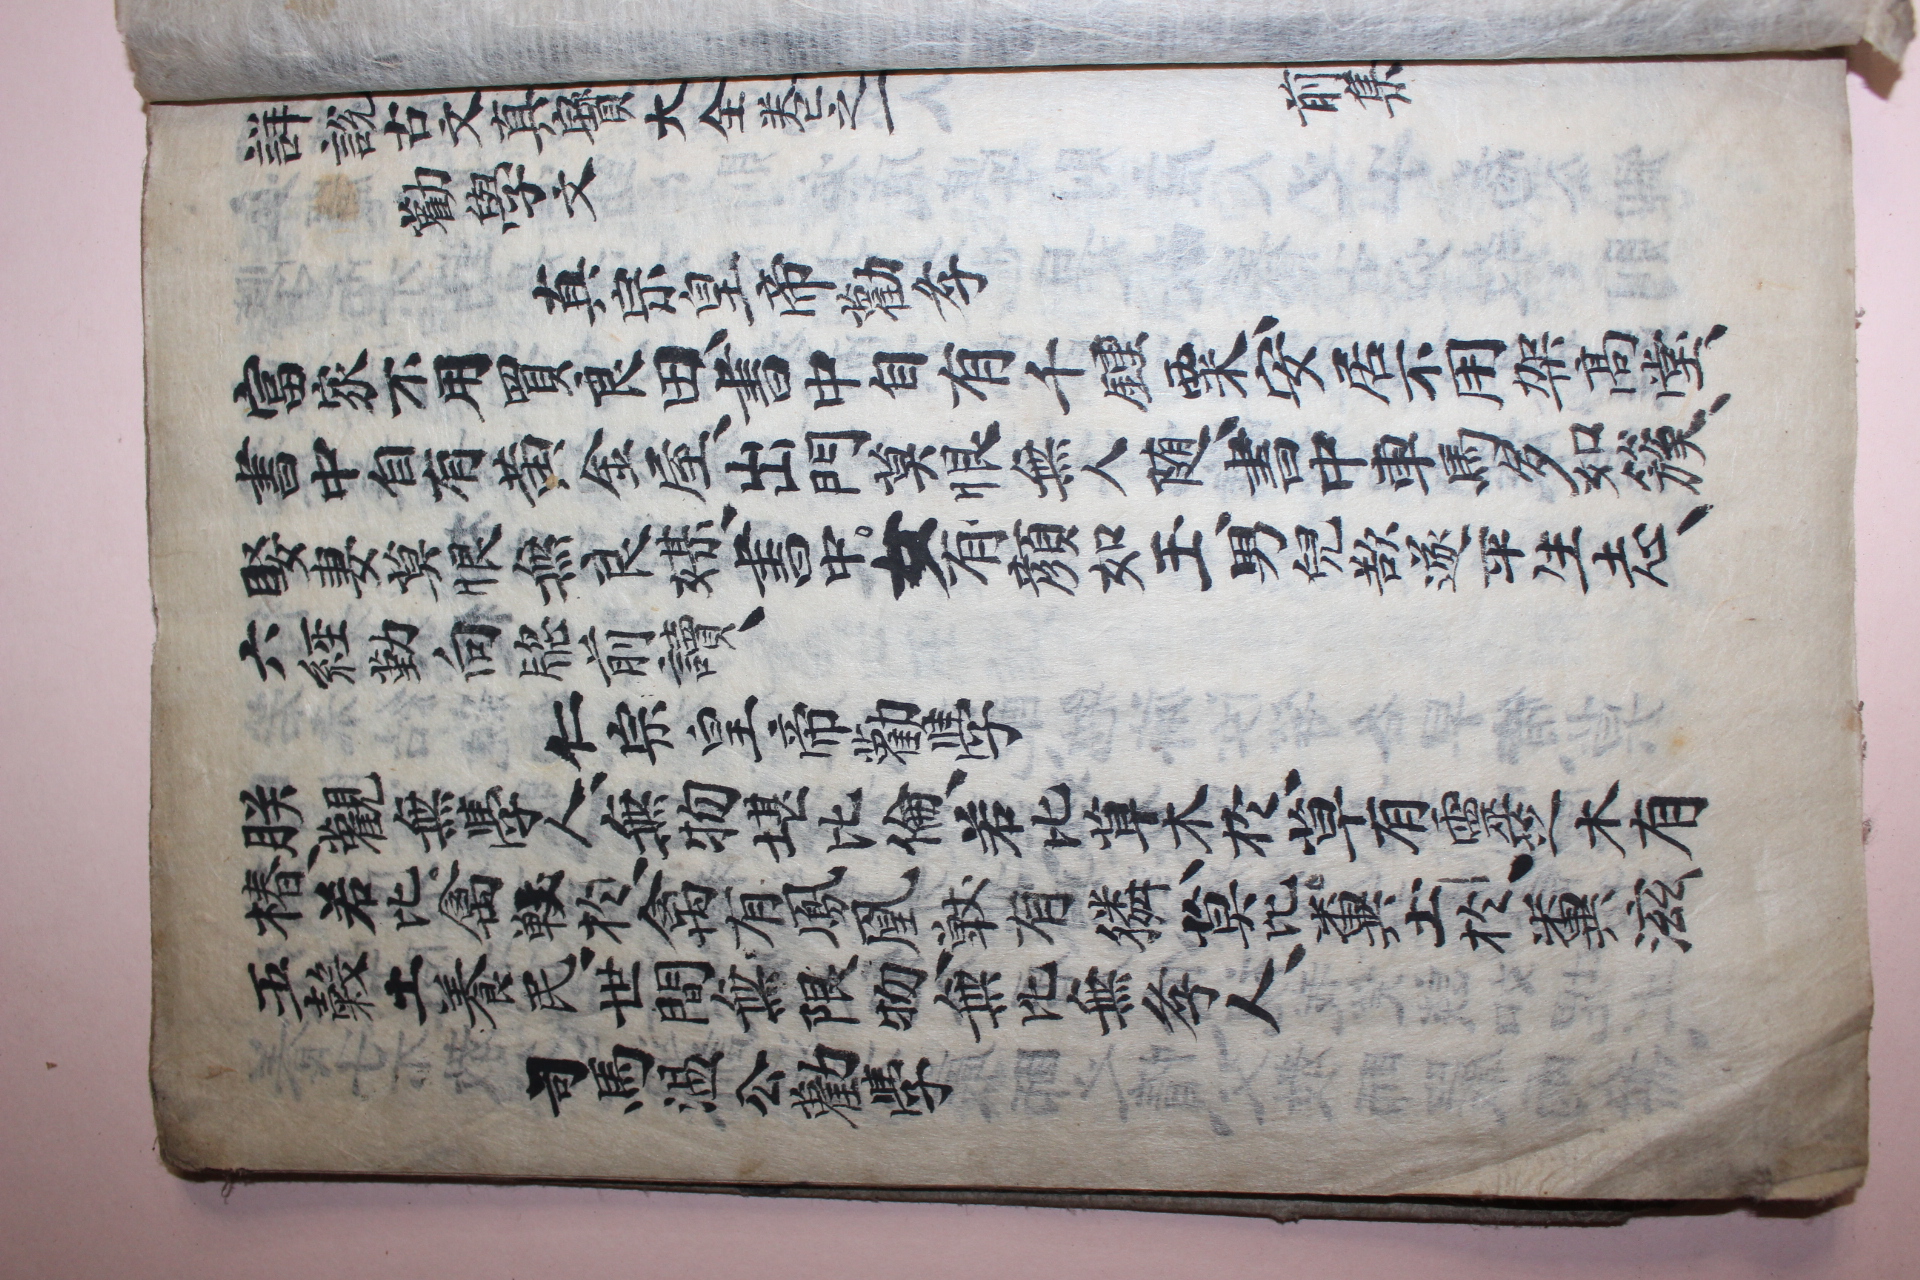 詳說古文真寶大全卷之一 前集
勸學文
真宗皇帝勸斈
富家不用買良田書中自有千鍾粟安居不用架高堂
書中自有黃金屋出門莫恨無人随書中車馬多如簇
娶妻莫恨無良媒書中女有顔如玉男兒欲遂平生志
六經勤向牕前讀
仁宗皇帝勸學
朕觀無學人無物堪比倫若比草木於草有靈芝木有
椿若比禽獸於禽有鳳凰獸有獜莫比糞土於糞滋
五穀土養民世間無限物無比無斈人
司馬温公勸學